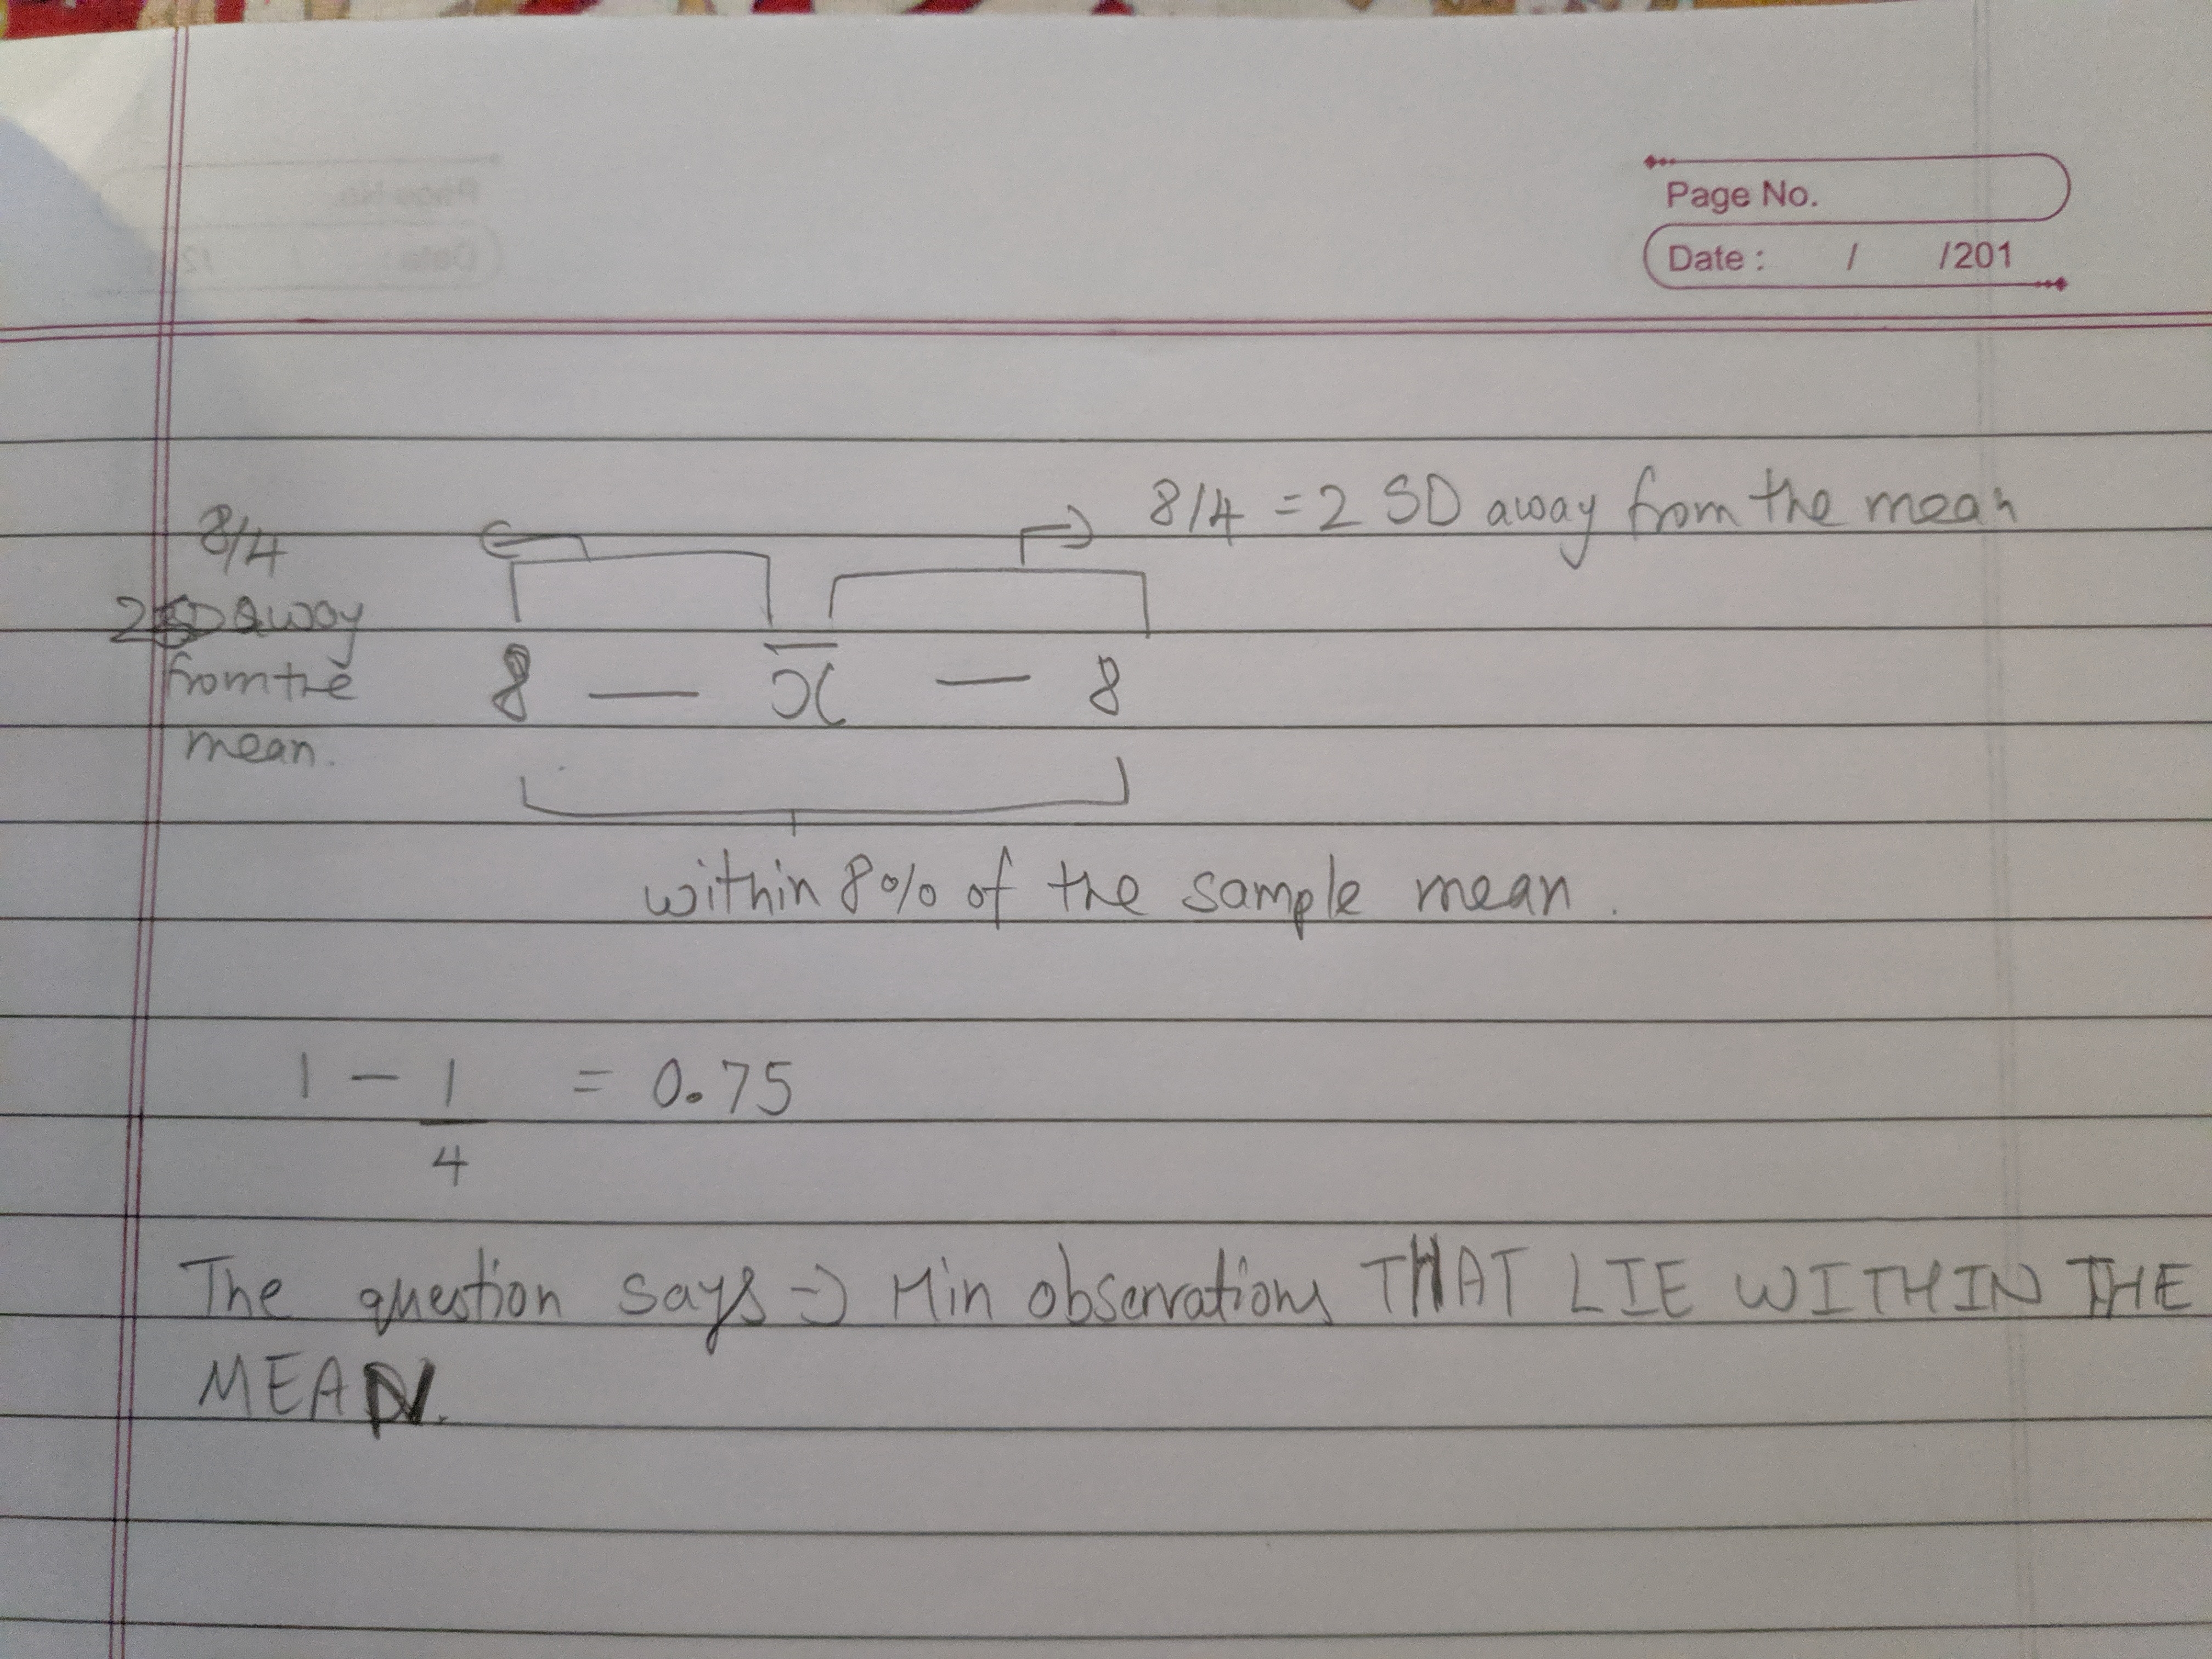 Page No.
Date : / /201
8/4 = 2 SD away from the mean
8/4
2 SD away
from the
mean.
8 — x̄ — 8
within 8% of the sample mean.
1 - 1/4 = 0.75
The question says => Min observations THAT LIE WITHIN THE
MEAN.